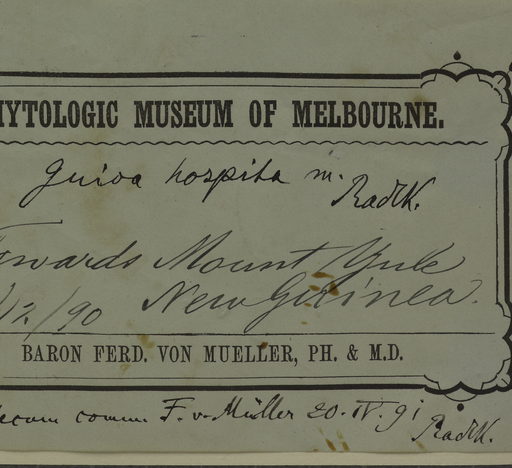 HYTOLOGIC MUSEUM OF MELBOURNE.
Guioa hospita m. Radlk.
Towards Mount Yule
/12/90 New Guinea.
BARON FERD. VON MUELLER, PH. & M.D.
mecum comm. F. v. Müller 20. IV. 91
Radlk.